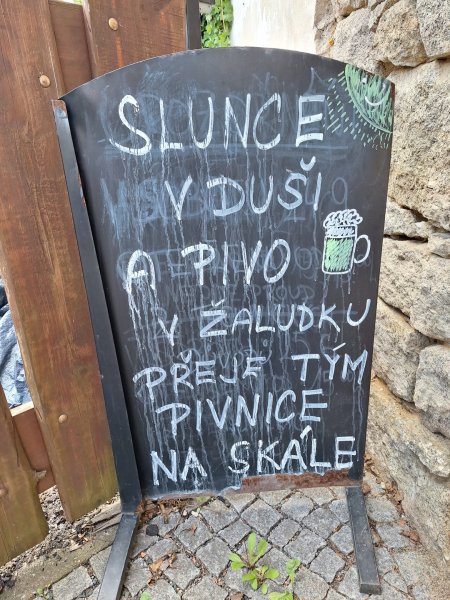 SLUNCE
V DUŠI
A PIVO
V ŽALUDKU
PŘEJE TÝM
PIVNICE
NA SKÁLE